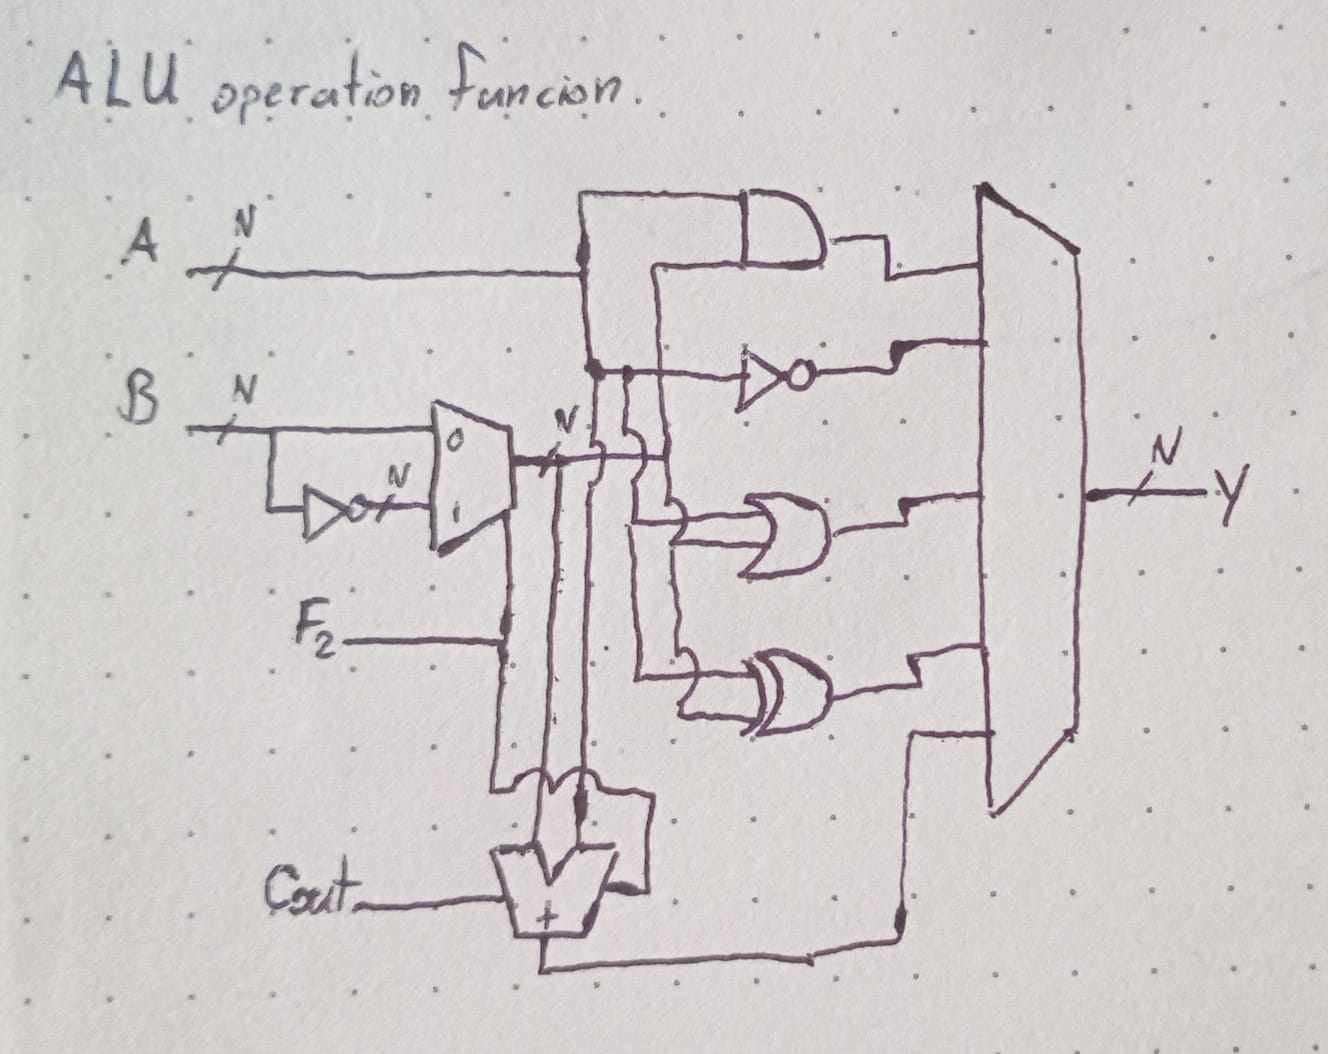 ALU operation funcion.
A N
B N
0
N
N
1
N
Y
F2
Cout
+